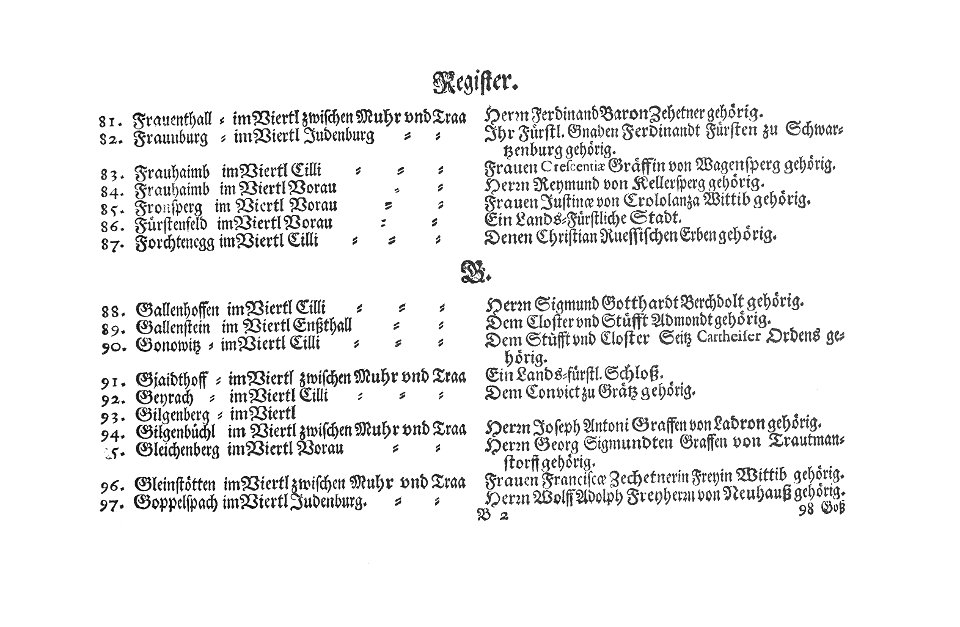 Register.
81. Frauenthall ⸗ im Viertl zwischen Muhr vnd Traa Herrn Ferdinand Baron Zehetner gehörig.
82. Fraunburg ⸗ im Viertl Judenburg ⸗ ⸗ Ihr Fürstl. Gnaden Ferdinandt Fürsten zu Schwar⸗
tzenburg gehörig.
83. Frauhaimb im Viertl Cilli ⸗ ⸗ ⸗ Frauen Crescentiæ Gräffin von Wagensperg gehörig.
84. Frauhaimb im Viertl Vorau ⸗ ⸗ Herrn Reymund von Kellersperg gehörig.
85. Fronsperg im Viertl Vorau ⸗ ⸗ Frauen Justinæ von Crololanza Wittib gehörig.
86. Fürstenfeld im Viertl Vorau ⸗ ⸗ Ein Lands⸗Fürstliche Stadt.
87. Forchtenegg im Viertl Cilli ⸗ ⸗ ⸗ Denen Christian Ruessischen Erben gehörig.
G.
88. Gallenhoffen im Viertl Cilli ⸗ ⸗ ⸗ Herrn Sigmund Gotthardt Berchdolt gehörig.
89. Gallenstein im Viertl Enßthall ⸗ ⸗ Dem Closter vnd Stüfft Admondt gehörig.
90. Gonowitz ⸗ im Viertl Cilli ⸗ ⸗ ⸗ Dem Stüfft vnd Closter Seitz Cartheiser Ordens ge⸗
hörig.
91. Gjaidthoff ⸗ im Viertl zwischen Muhr vnd Traa Ein Lands⸗fürstl. Schloß.
92. Geyrach ⸗ im Viertl Cilli ⸗ ⸗ ⸗ Dem Convict zu Grätz gehörig.
93. Gilgenberg ⸗ im Viertl
94. Gilgenbüchl im Viertl zwischen Muhr vnd Traa Herrn Joseph Antoni Graffen von Ladron gehörig.
5. Gleichenberg im Viertl Vorau ⸗ ⸗ Herrn Georg Sigmundten Graffen von Trautman⸗
storff gehörig.
96. Gleinstötten im Viertl zwischen Muhr vnd Traa Frauen Franciscæ Zechetnerin Freyin Wittib gehörig.
97. Goppelspach im Viertl Judenburg. ⸗ ⸗ Herrn Wolff Adolph Freyherrn von Neuhauß gehörig.
B 2 98 Goß